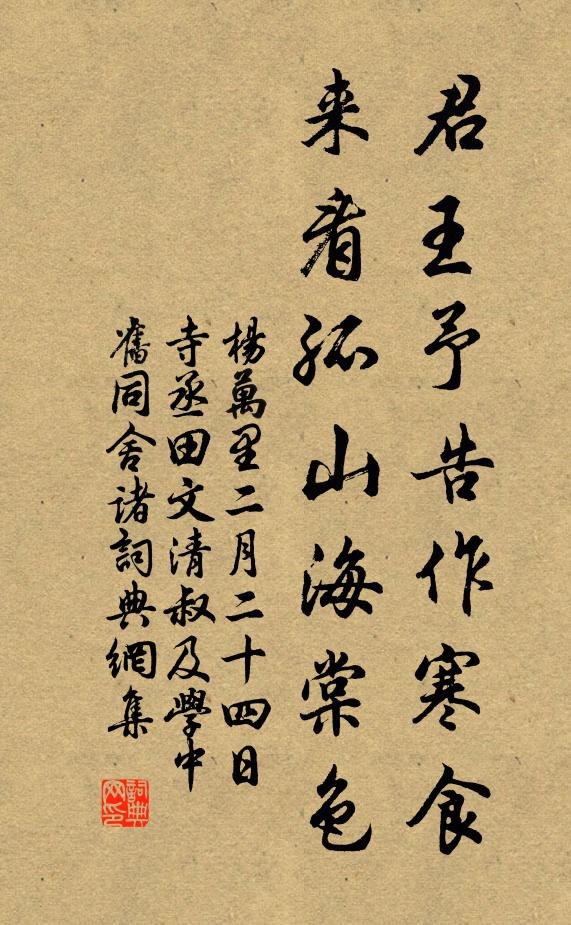 君王予告作寒食
来看孤山海棠色
楊萬里二月二十四日
寺丞田文清叔及學中
舊同舍诸詞典網集
詞典
网印